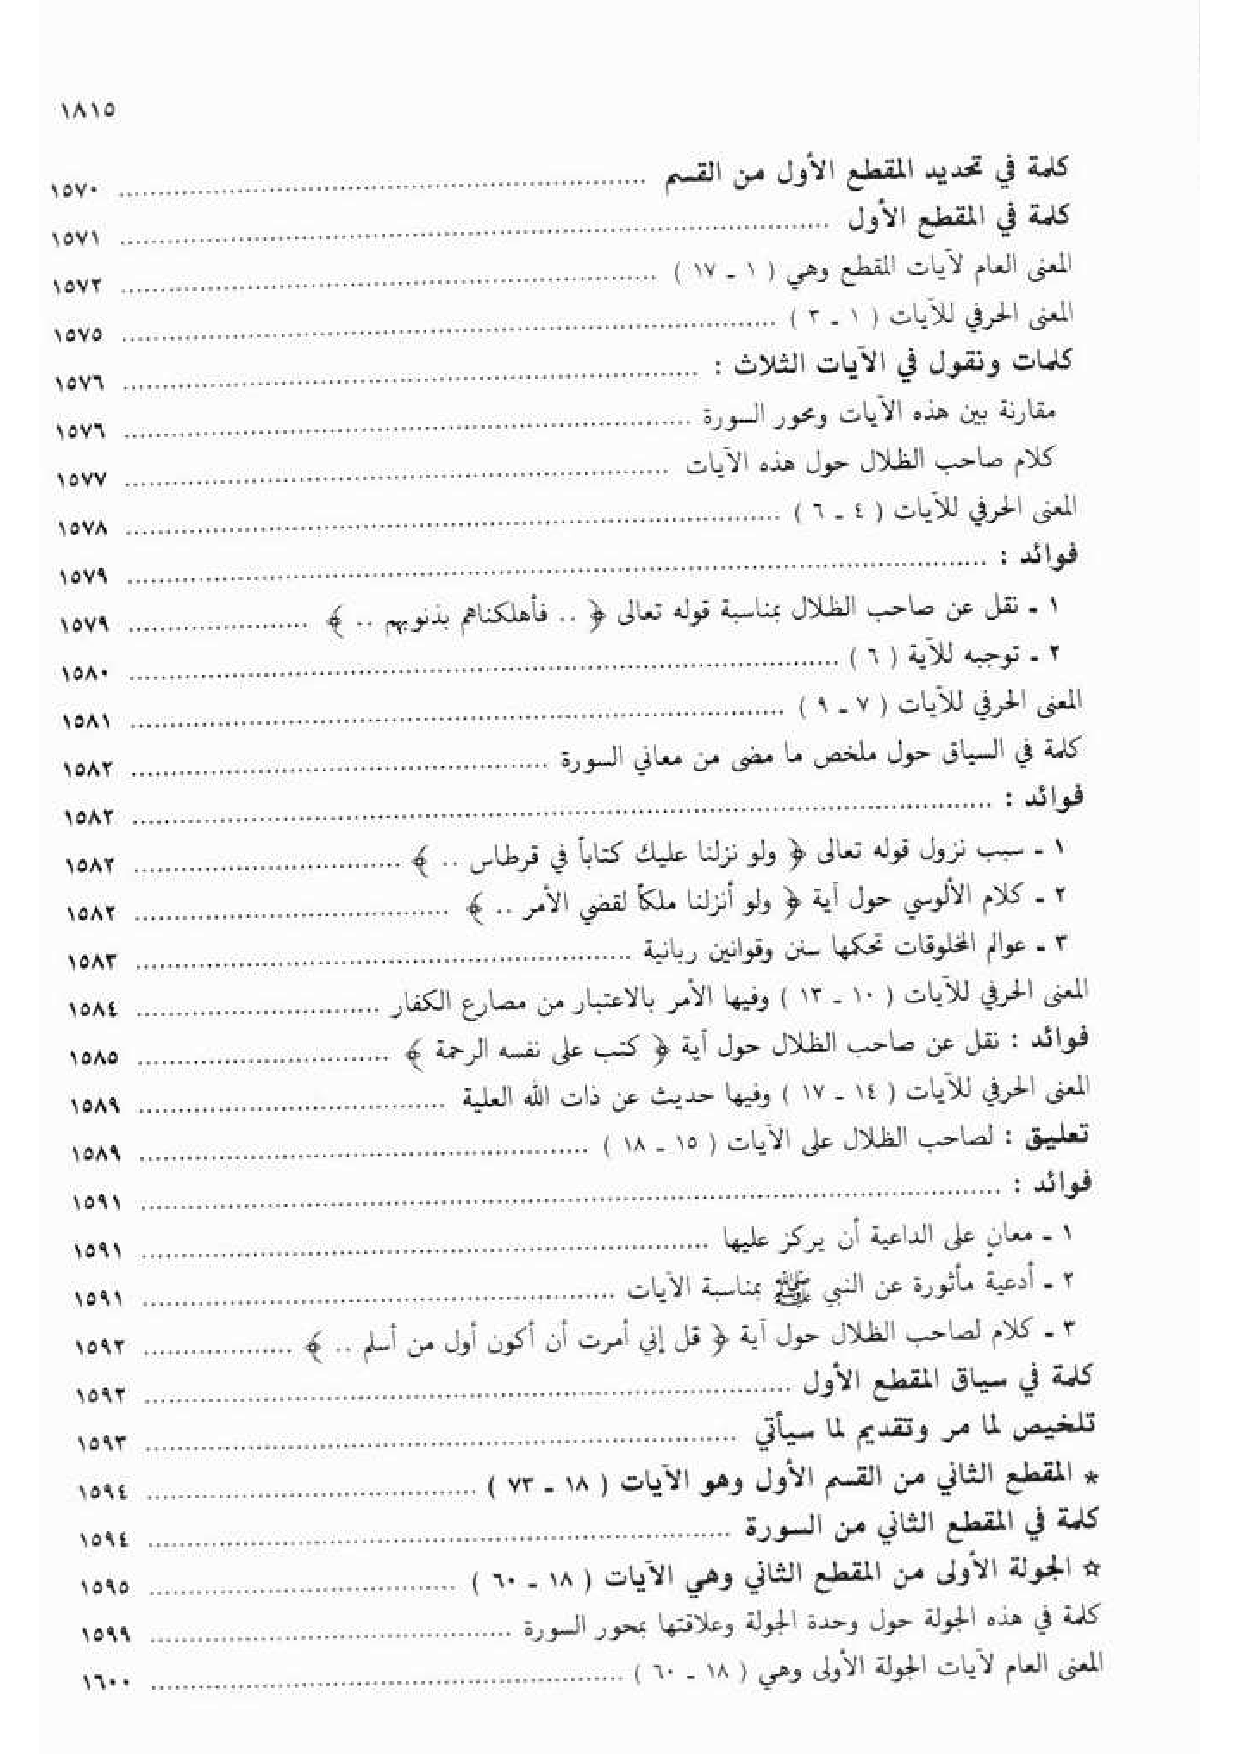 ١٨١٥
كلمة في تحديد المقطع الأول من القسم ........ ١٥٧٠
كلمة في المقطع الأول ........ ١٥٧١
المعنى العام لآيات المقطع وهي ( ١ ـ ١٧ ) ........ ١٥٧٢
المعنى الحرفي للآيات ( ١ ـ ٣ ) ........ ١٥٧٥
كلمات ونقول في الآيات الثلاث : ........ ١٥٧٦
مقارنة بين هذه الآيات ومحور السورة ........ ١٥٧٦
كلام صاحب الظلال حول هذه الآيات ........ ١٥٧٧
المعنى الحرفي للآيات ( ٤ ـ ٦ ) ........ ١٥٧٨
فوائد : ........ ١٥٧٩
١ ـ نقل عن صاحب الظلال بمناسبة قوله تعالى ﴿ .. فأهلكناهم بذنوبهم .. ﴾ ........ ١٥٧٩
٢ ـ توجيه للآية ( ٦ ) ........ ١٥٨٠
المعنى الحرفي للآيات ( ٧ ـ ٩ ) ........ ١٥٨١
كلمة في السياق حول ملخص ما مضى من معاني السورة ........ ١٥٨٢
فوائد : ........ ١٥٨٢
١ ـ سبب نزول قوله تعالى ﴿ ولو نزلنا عليك كتاباً في قرطاس .. ﴾ ........ ١٥٨٢
٢ ـ كلام الألوسي حول آية ﴿ ولو أنزلنا ملكاً لقضي الأمر .. ﴾ ........ ١٥٨٢
٣ ـ عوالم المخلوقات تحكمها سنن وقوانين ربانية ........ ١٥٨٣
المعنى الحرفي للآيات ( ١٠ ـ ١٣ ) وفيها الأمر بالاعتبار من مصارع الكفار ........ ١٥٨٤
فوائد : نقل عن صاحب الظلال حول آية ﴿ كتب على نفسه الرحمة ﴾ ........ ١٥٨٥
المعنى الحرفي للآيات ( ١٤ ـ ١٧ ) وفيها حديث عن ذات الله العلية ........ ١٥٨٩
تعليق : لصاحب الظلال على الآيات ( ١٥ ـ ١٨ ) ........ ١٥٨٩
فوائد : ........ ١٥٩١
١ ـ معانٍ على الداعية أن يركز عليها ........ ١٥٩١
٢ ـ أدعية مأثورة عن النبي ﷺ بمناسبة الآيات ........ ١٥٩١
٣ ـ كلام لصاحب الظلال حول آية ﴿ قل إني أمرت أن أكون أول من أسلم .. ﴾ ........ ١٥٩٢
كلمة في سياق المقطع الأول ........ ١٥٩٢
تلخيص لما مر وتقديم لما سيأتي ........ ١٥٩٣
* المقطع الثاني من القسم الأول وهو الآيات ( ١٨ ـ ٧٣ ) ........ ١٥٩٤
كلمة في المقطع الثاني من السورة ........ ١٥٩٤
☆ الجولة الأولى من المقطع الثاني وهي الآيات ( ١٨ ـ ٦٠ ) ........ ١٥٩٥
كلمة في هذه الجولة حول وحدة الجولة وعلاقتها بمحور السورة ........ ١٥٩٩
المعنى العام لآيات الجولة الأولى وهي ( ١٨ ـ ٦٠ ) ........ ١٦٠٠